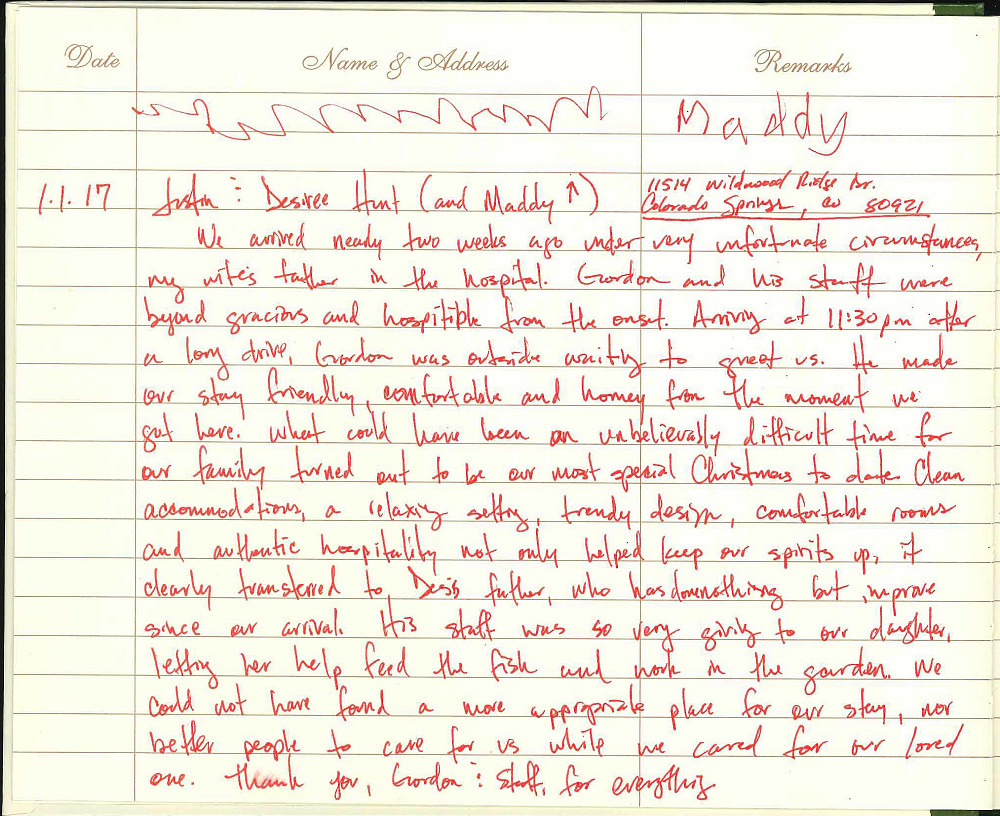 Date Name & Address Remarks
Maddy
1.1.17 Justin : Desiree Hunt (and Maddy ↑) 11514 Wildwood Ridge Dr.
Colorado Springs, CO 80921
We arrived nearly two weeks ago under very unfortunate circumstances,
my wife's father in the hospital. Gordon and his staff were
beyond gracious and hospitible from the onset. Arriving at 11:30pm after
a long drive, Gordon was outside waiting to greet us. He made
our stay friendly, comfortable and homey from the moment we
got here. What could have been an unbelievably difficult time for
our family turned out to be our most special Christmas to date. Clean
accommodations, a relaxing setting, trendy design, comfortable rooms
and authentic hospitality not only helped keep our spirits up, it
clearly transferred to Desi's father, who has done nothing but improve
since our arrival. His staff was so very giving to our daughter,
letting her help feed the fish and work in the garden. We
could not have found a more appropriate place for our stay, nor
better people to care for us while we cared for our loved
one. Thank you, Gordon : Staff, for everything